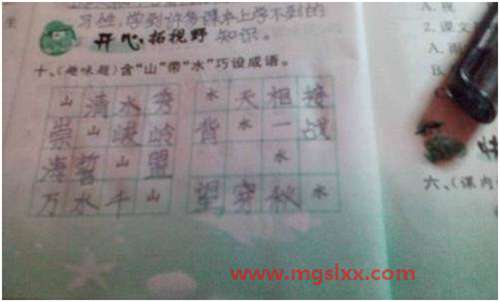 习惯,学到许多课本上学不到的
开心拓视野 知识。
十、(趣味题)含“山”带“水”巧设成语。
山清水秀 水天相接
崇山峻岭 背水一战
海誓山盟 水
万水千山 望穿秋水
2.课文
A.
B.
六、(课内
www.mgslxx.com